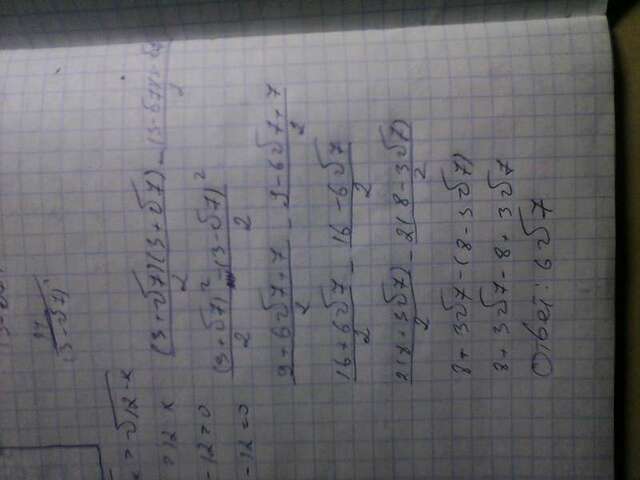 (3-√7)
x = √12-x
= 12 x
- 12 = 0
- 12 = 0
(3+√7)(3+√7)/2 - (3-√7)
(3+√7)²/2 - (3-√7)²/2
9+6√7+7/2 - 9-6√7+7/2
16+6√7/2 - 16-6√7/2
2(8+3√7)/2 - 2(8-3√7)/2
8+3√7-(8-3√7)
8+3√7-8+3√7
Ответ: 6√7